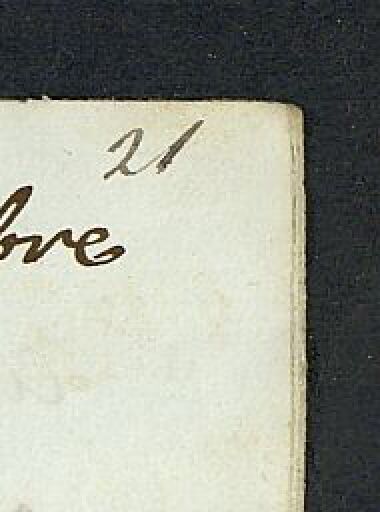 21
bre